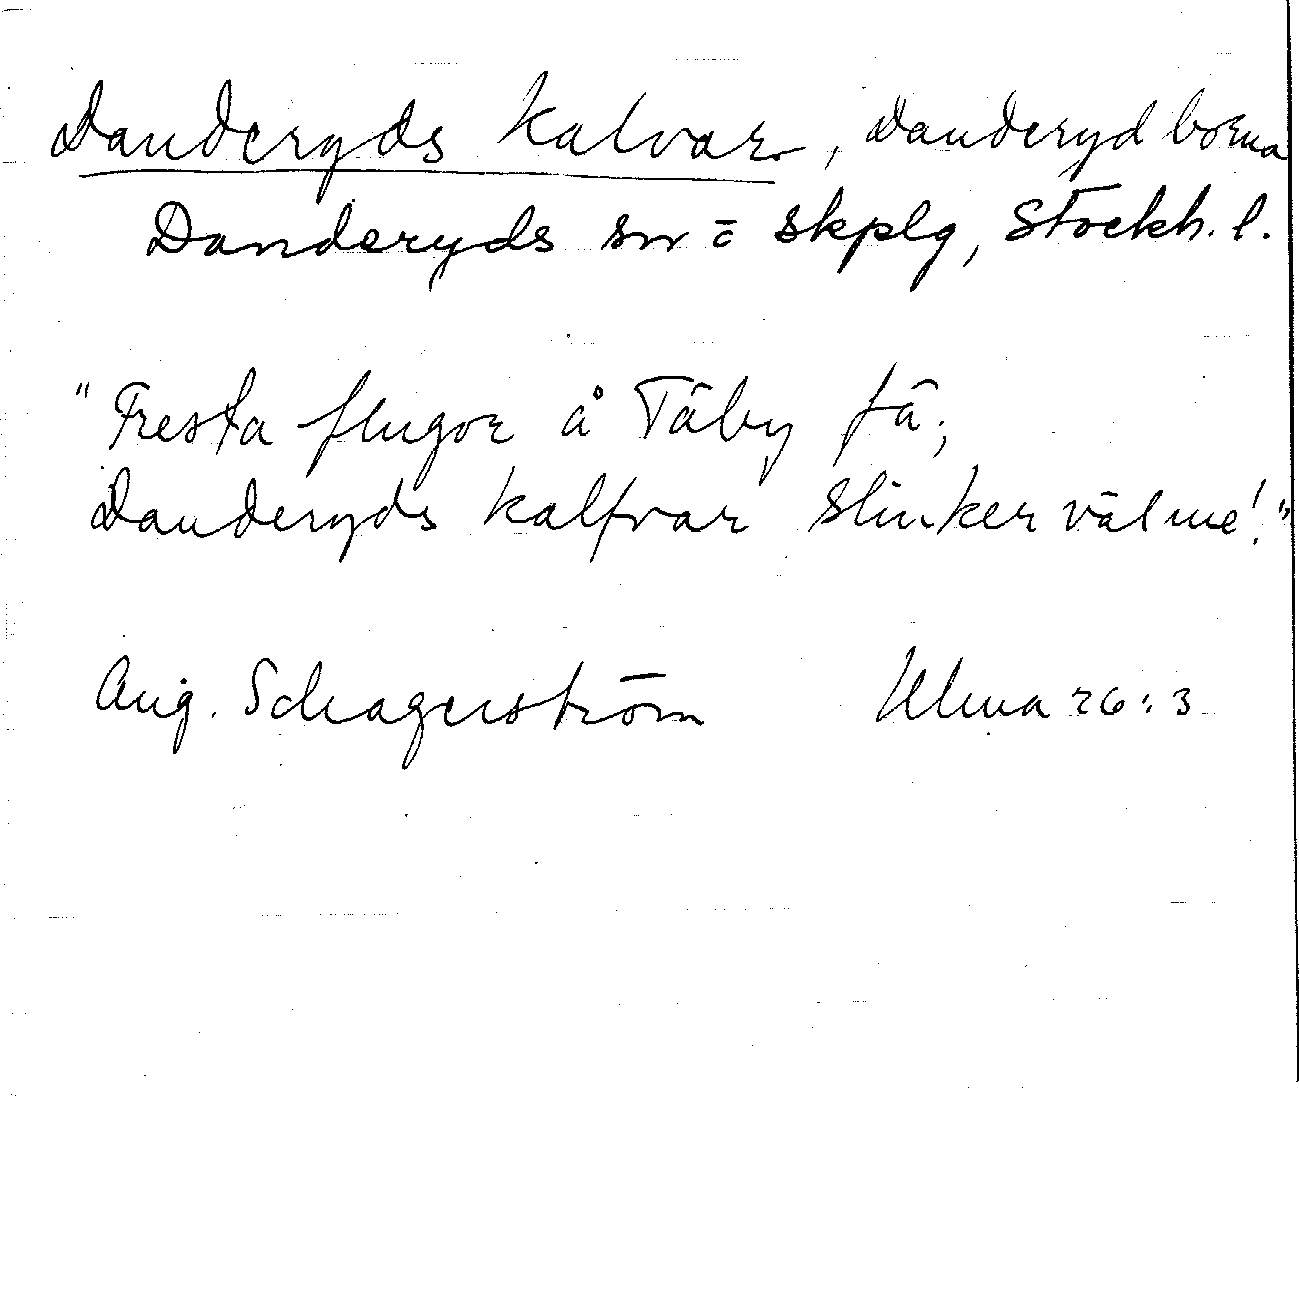 Danderyds kalvar, Danderydborna
Danderyds sn o skplg, Stockh. l.
"Fresta flugor å Täby fä;
Danderyds kalfvar slinker väl me!"
Aug. Schagerström Ulma 26:3